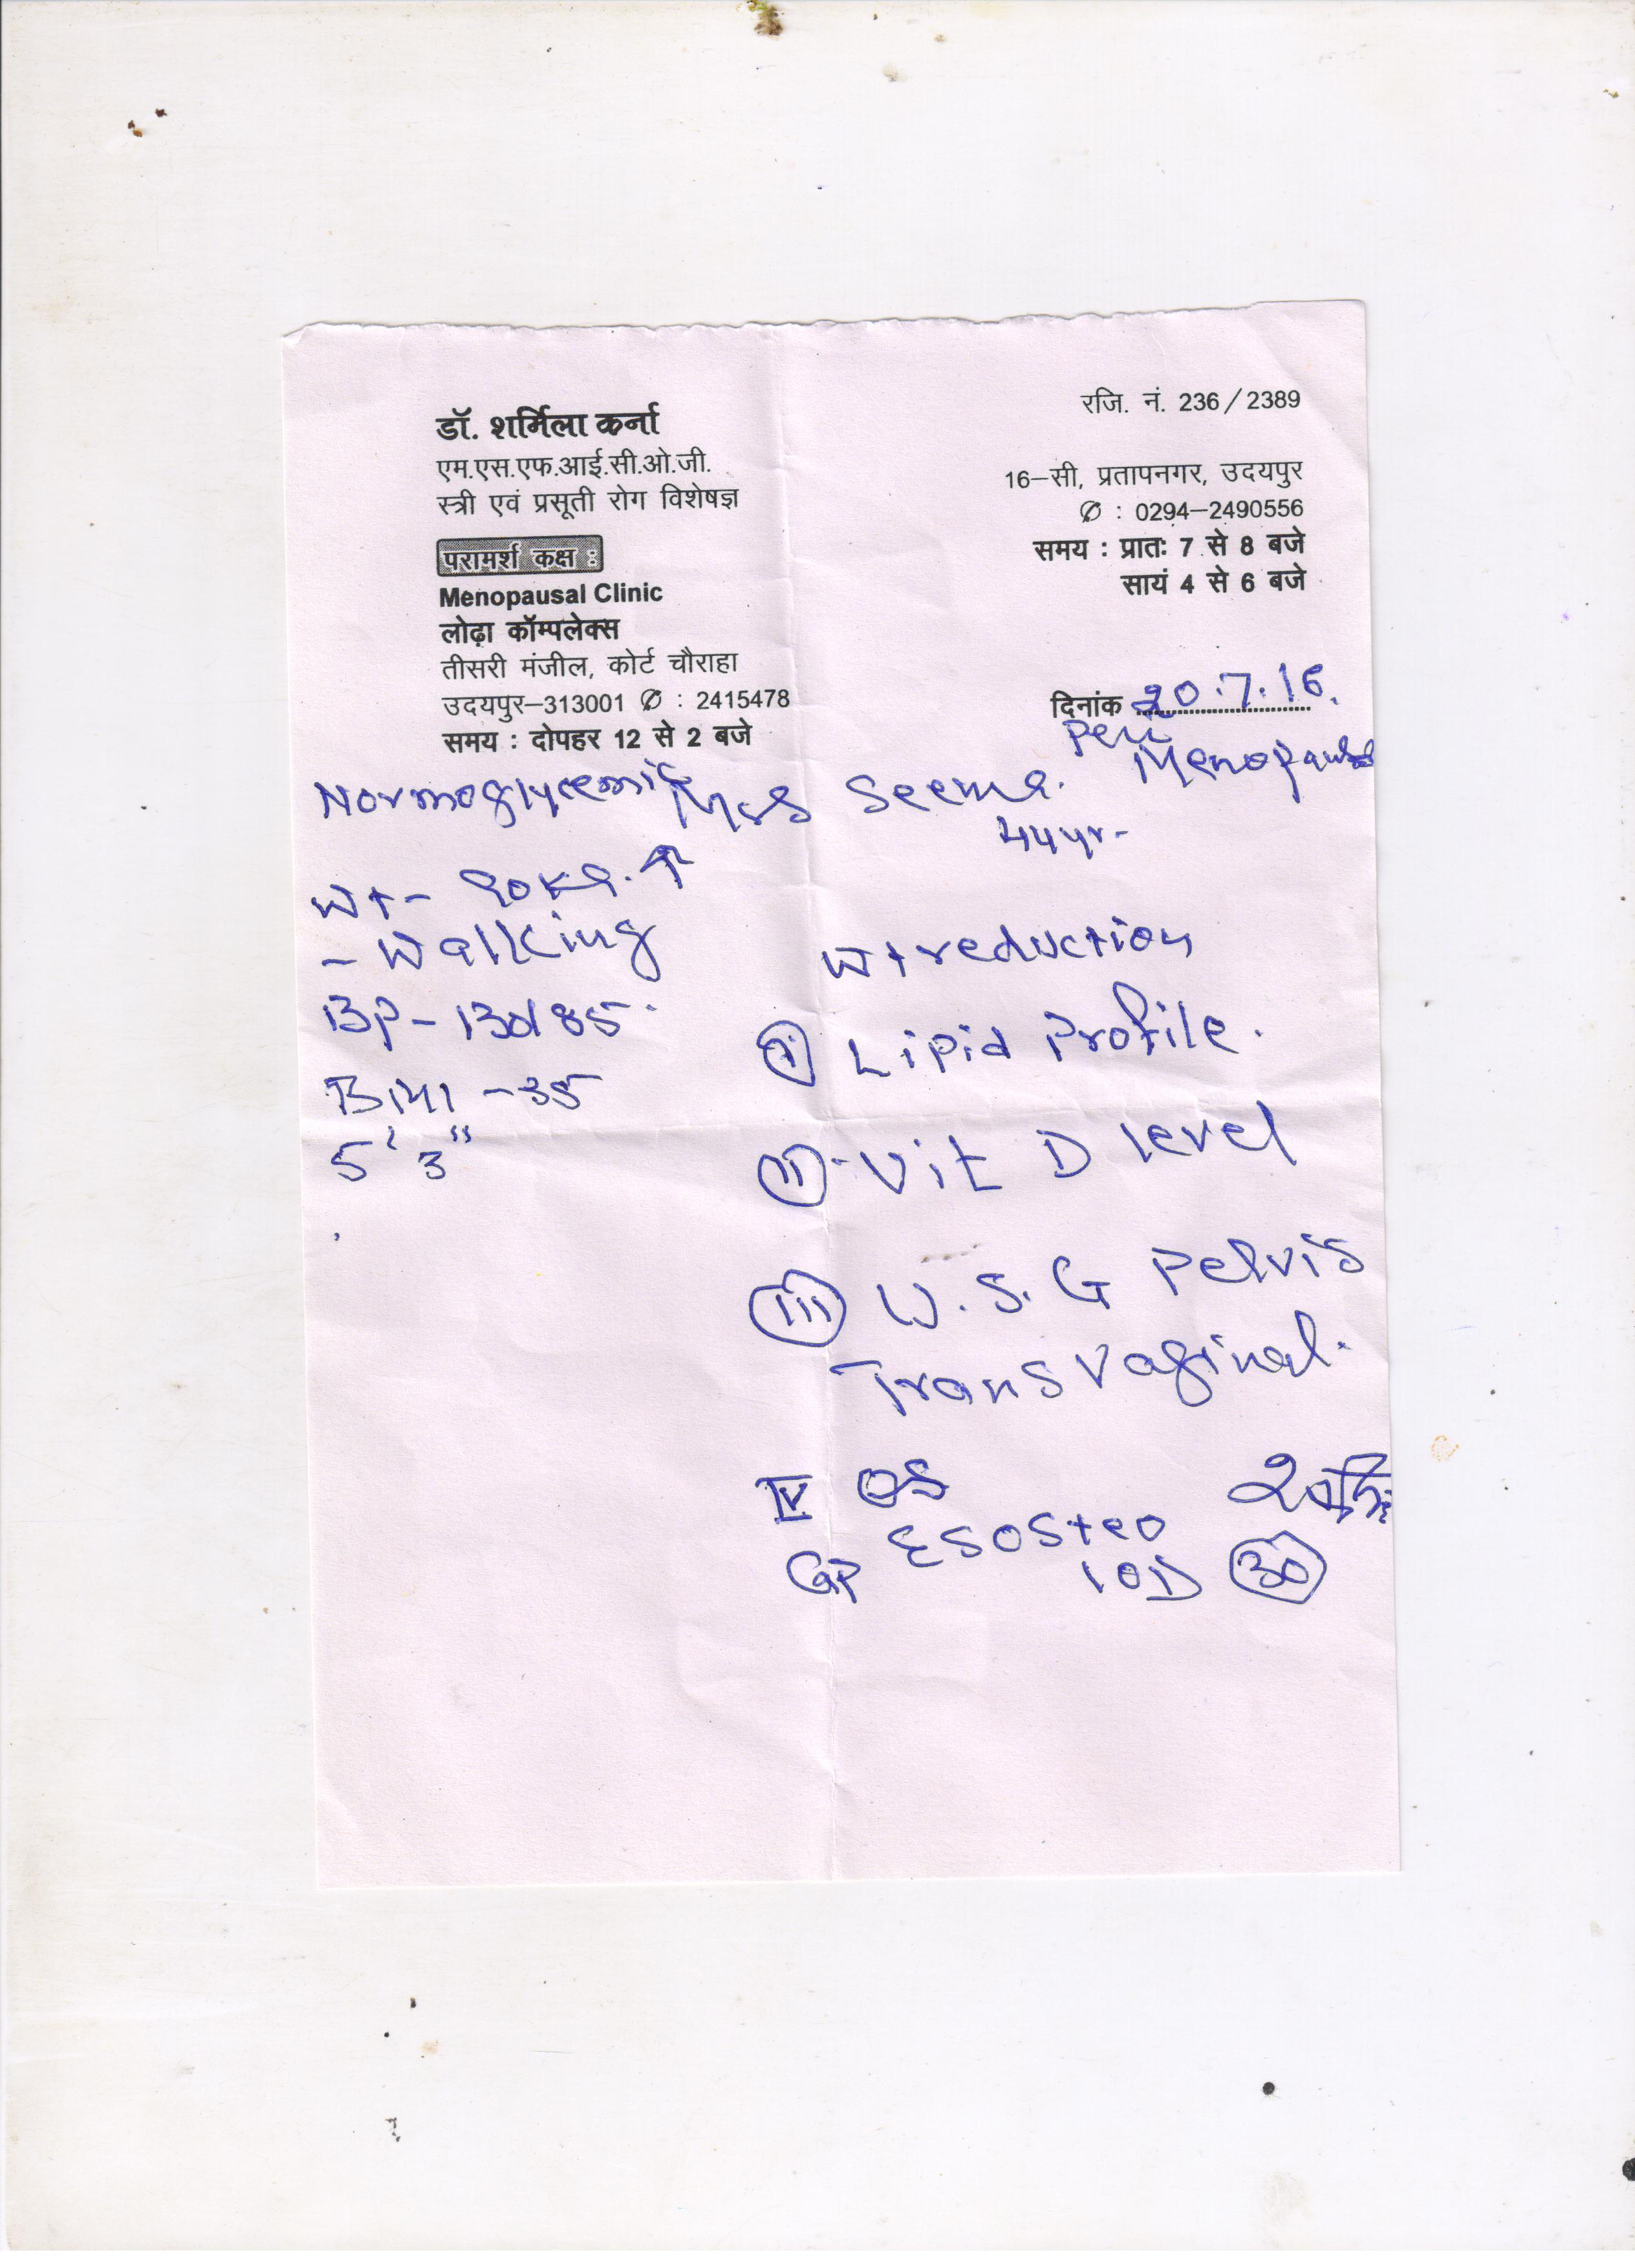 डॉ. शर्मिला कर्ना
एम.एस.एफ.आई.सी.ओ.जी.
स्त्री एवं प्रसूती रोग विशेषज्ञ
परामर्श कक्ष :
Menopausal Clinic
लोढ़ा कॉम्पलेक्स
तीसरी मंजील, कोर्ट चौराहा
उदयपुर–313001 ✆ : 2415478
समय : दोपहर 12 से 2 बजे
रजि. नं. 236/2389
16–सी, प्रतापनगर, उदयपुर
✆ : 0294–2490556
समय : प्रातः 7 से 8 बजे
सायं 4 से 6 बजे
दिनांक 20.7.16.
Peri
Menopausal
Normoglycemic Mrs Seema.
44 yr-
Wt - 90 kg. ↑
- Walking
BP - 130/85
BMI - 35
5' 3"
Wt reduction
(i) Lipid Profile.
(ii) - Vit D level
(iii) U.S.G Pelvis
Trans Vaginal.
IV
GP Esosteo
1OD (30)